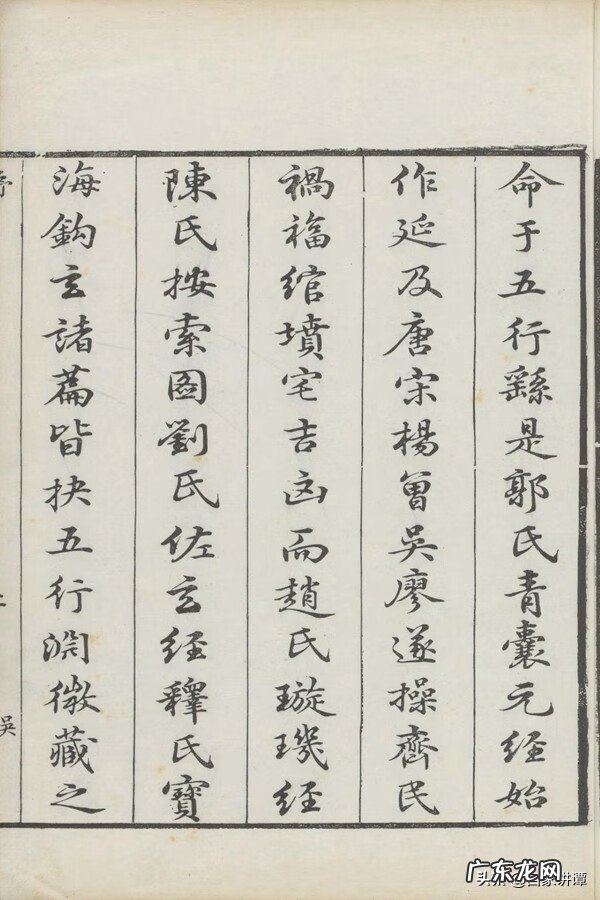 命于五行繇是郭氏青囊元经始
作延及唐宋楊曾吳廖遂操齊民
禍福綰墳宅吉凶而趙氏璇璣经
陳氏按索圖劉氏佐玄经釋氏寶
海鈎玄諸篇皆抉五行淵微藏之
吳
广东龙网